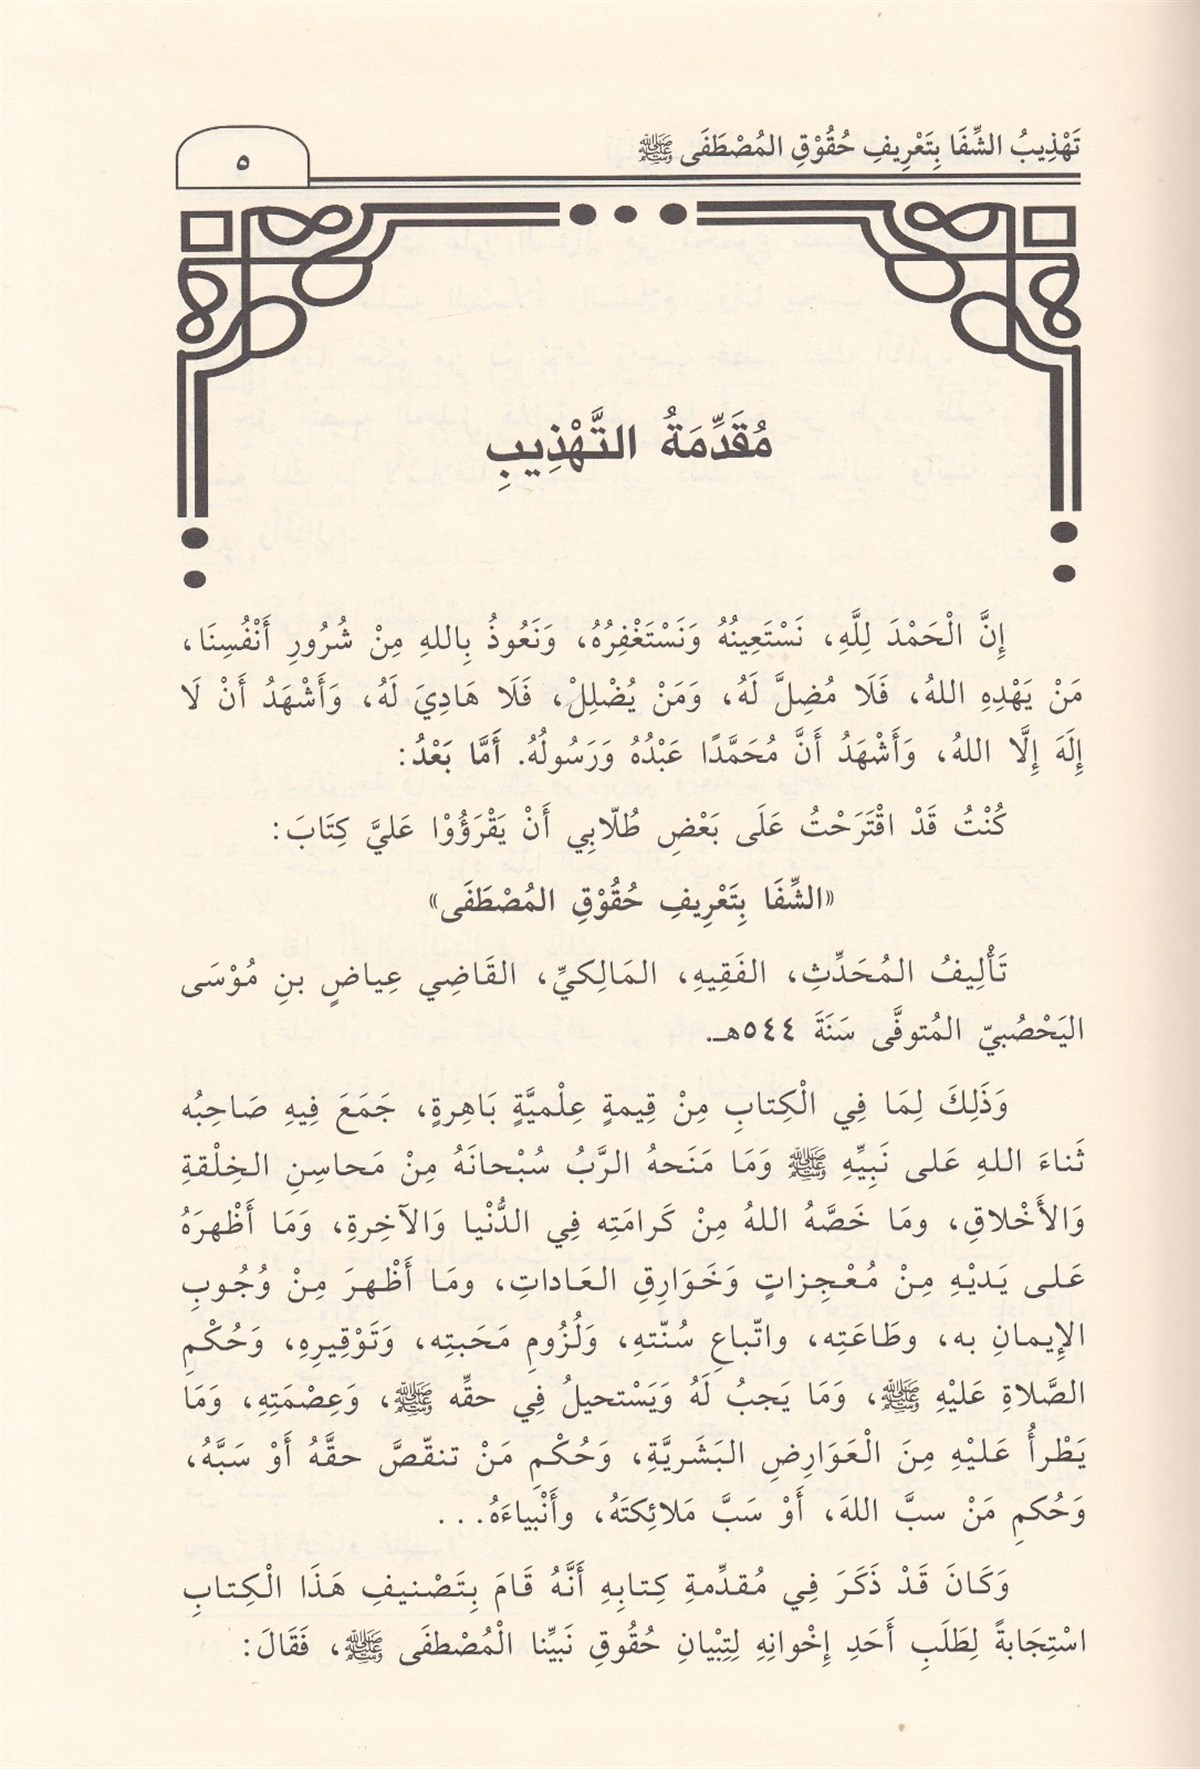 تَهْذِيبُ الشِّفَا بِتَعْرِيفِ حُقُوْقِ المُصْطَفَى ﷺ
٥
مُقَدِّمَةُ التَّهْذِيبِ
إِنَّ الْحَمْدَ لِلَّهِ، نَسْتَعِينُهُ وَنَسْتَغْفِرُهُ، وَنَعُوذُ بِاللهِ مِنْ شُرُورِ أَنْفُسِنَا،
مَنْ يَهْدِهِ اللهُ، فَلَا مُضِلَّ لَهُ، وَمَنْ يُضْلِلْ، فَلَا هَادِيَ لَهُ، وَأَشْهَدُ أَنْ لَا
إِلَهَ إِلَّا اللهُ، وَأَشْهَدُ أَنَّ مُحَمَّدًا عَبْدُهُ وَرَسُولُهُ. أَمَّا بَعْدُ:
كُنْتُ قَدْ اقْتَرَحْتُ عَلَى بَعْضِ طُلّابِي أَنْ يَقْرَؤُوْا عَليَّ كِتَابَ:
«الشِّفَا بِتَعْرِيفِ حُقُوْقِ المُصْطَفَى»
تَأْلِيفُ المُحَدِّثِ، الفَقِيهِ، المَالِكيِّ، القَاضِي عِياضٍ بنِ مُوْسَى
اليَحْصُبيّ المُتوفَّى سَنَةَ ٥٤٤هـ.
وَذَلِكَ لِمَا فِي الْكِتابِ مِنْ قِيمةٍ عِلْميَّةٍ بَاهِرةٍ، جَمَعَ فِيهِ صَاحِبُه
ثَناءَ اللهِ عَلى نَبِيِّهِ ﷺ وَمَا مَنَحهُ الرَّبُ سُبْحانَهُ مِنْ مَحاسِنِ الخِلْقةِ
وَالأَخْلاقِ، ومَا خَصَّهُ اللهُ مِنْ كَرامَتِه فِي الدُّنْيا وَالآخِرةِ، وَمَا أَظْهرَهُ
عَلى يَديْهِ مِنْ مُعْجِزاتٍ وَخَوَارِقِ العَاداتِ، ومَا أَظْهرَ مِنْ وُجُوبِ
الإِيمانِ به، وطَاعَتِه، واتّباعِ سُنّتهِ، وَلُزُومِ مَحَبتِه، وَتَوْقِيرِهِ، وَحُكْمِ
الصَّلاةِ عَليْهِ ﷺ، وَمَا يَجبُ لَهُ وَيَسْتحيلُ فِي حقِّه ﷺ، وَعِصْمَتِهِ، وَمَا
يَطْرأُ عَليْهِ مِنَ الْعَوَارِضِ البَشَريَّةِ، وَحُكْمِ مَنْ تنقّصَّ حقَّهُ أَوْ سَبَّهُ،
وَحُكمِ مَنْ سبَّ اللهَ، أَوْ سَبَّ مَلائِكتَهُ، وأَنْبياءَهُ...
وَكَانَ قَدْ ذَكَرَ فِي مُقدِّمةِ كِتابِهِ أَنَّهُ قَامَ بِتَصْنيفِ هَذَا الْكِتابِ
اسْتِجَابةً لِطَلَبِ أَحَدِ إِخْوانِهِ لِتِبْيانِ حُقُوقِ نَبيِّنا الْمُصْطفَى ﷺ، فَقَالَ: